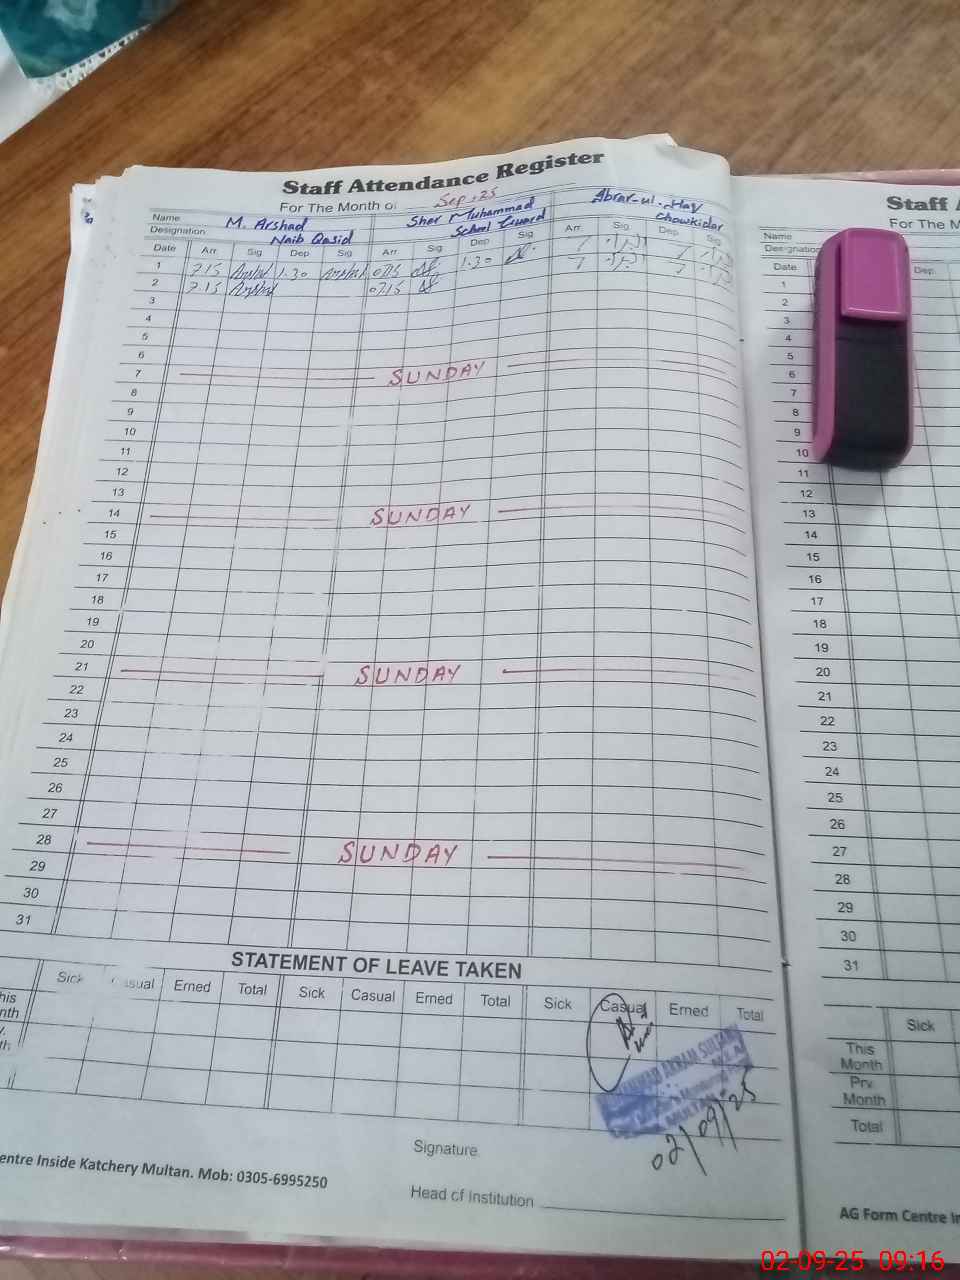 Staff Attendance Register
For The Month of Sep.25
Name M. Arshad Sher Muhammad Abrar-ul-Hay
Designation Naib Qasid School Guard Chowkidar
Date Arr Sig Dep Sig Arr Sig Dep Sig Arr Sig Dep Sig
1 7.15 Arshad 1.30 Arshad 0715 1.30 7 7
2 7.15 Arshad 0715 7 7
3
4
5
6
7 SUNDAY
8
9
10
11
12
13
14 SUNDAY
15
16
17
18
19
20
21 SUNDAY
22
23
24
25
26
27
28 SUNDAY
29
30
31
STATEMENT OF LEAVE TAKEN
Sick Casual Erned Total Sick Casual Erned Total Sick Casual Erned Total
MUHAMMAD AKRAM SULTAN
MULTAN
02/09/25
Signature
Head of Institution
entre Inside Katchery Multan. Mob: 0305-6995250
Staff A
For the M
Name
Designation
Date Dep
1
2
3
4
5
6
7
8
9
10
11
12
13
14
15
16
17
18
19
20
21
22
23
24
25
26
27
28
29
30
31
Sick
This
Month
Prv.
Month
Total
AG Form Centre In
02-09-25 09:16